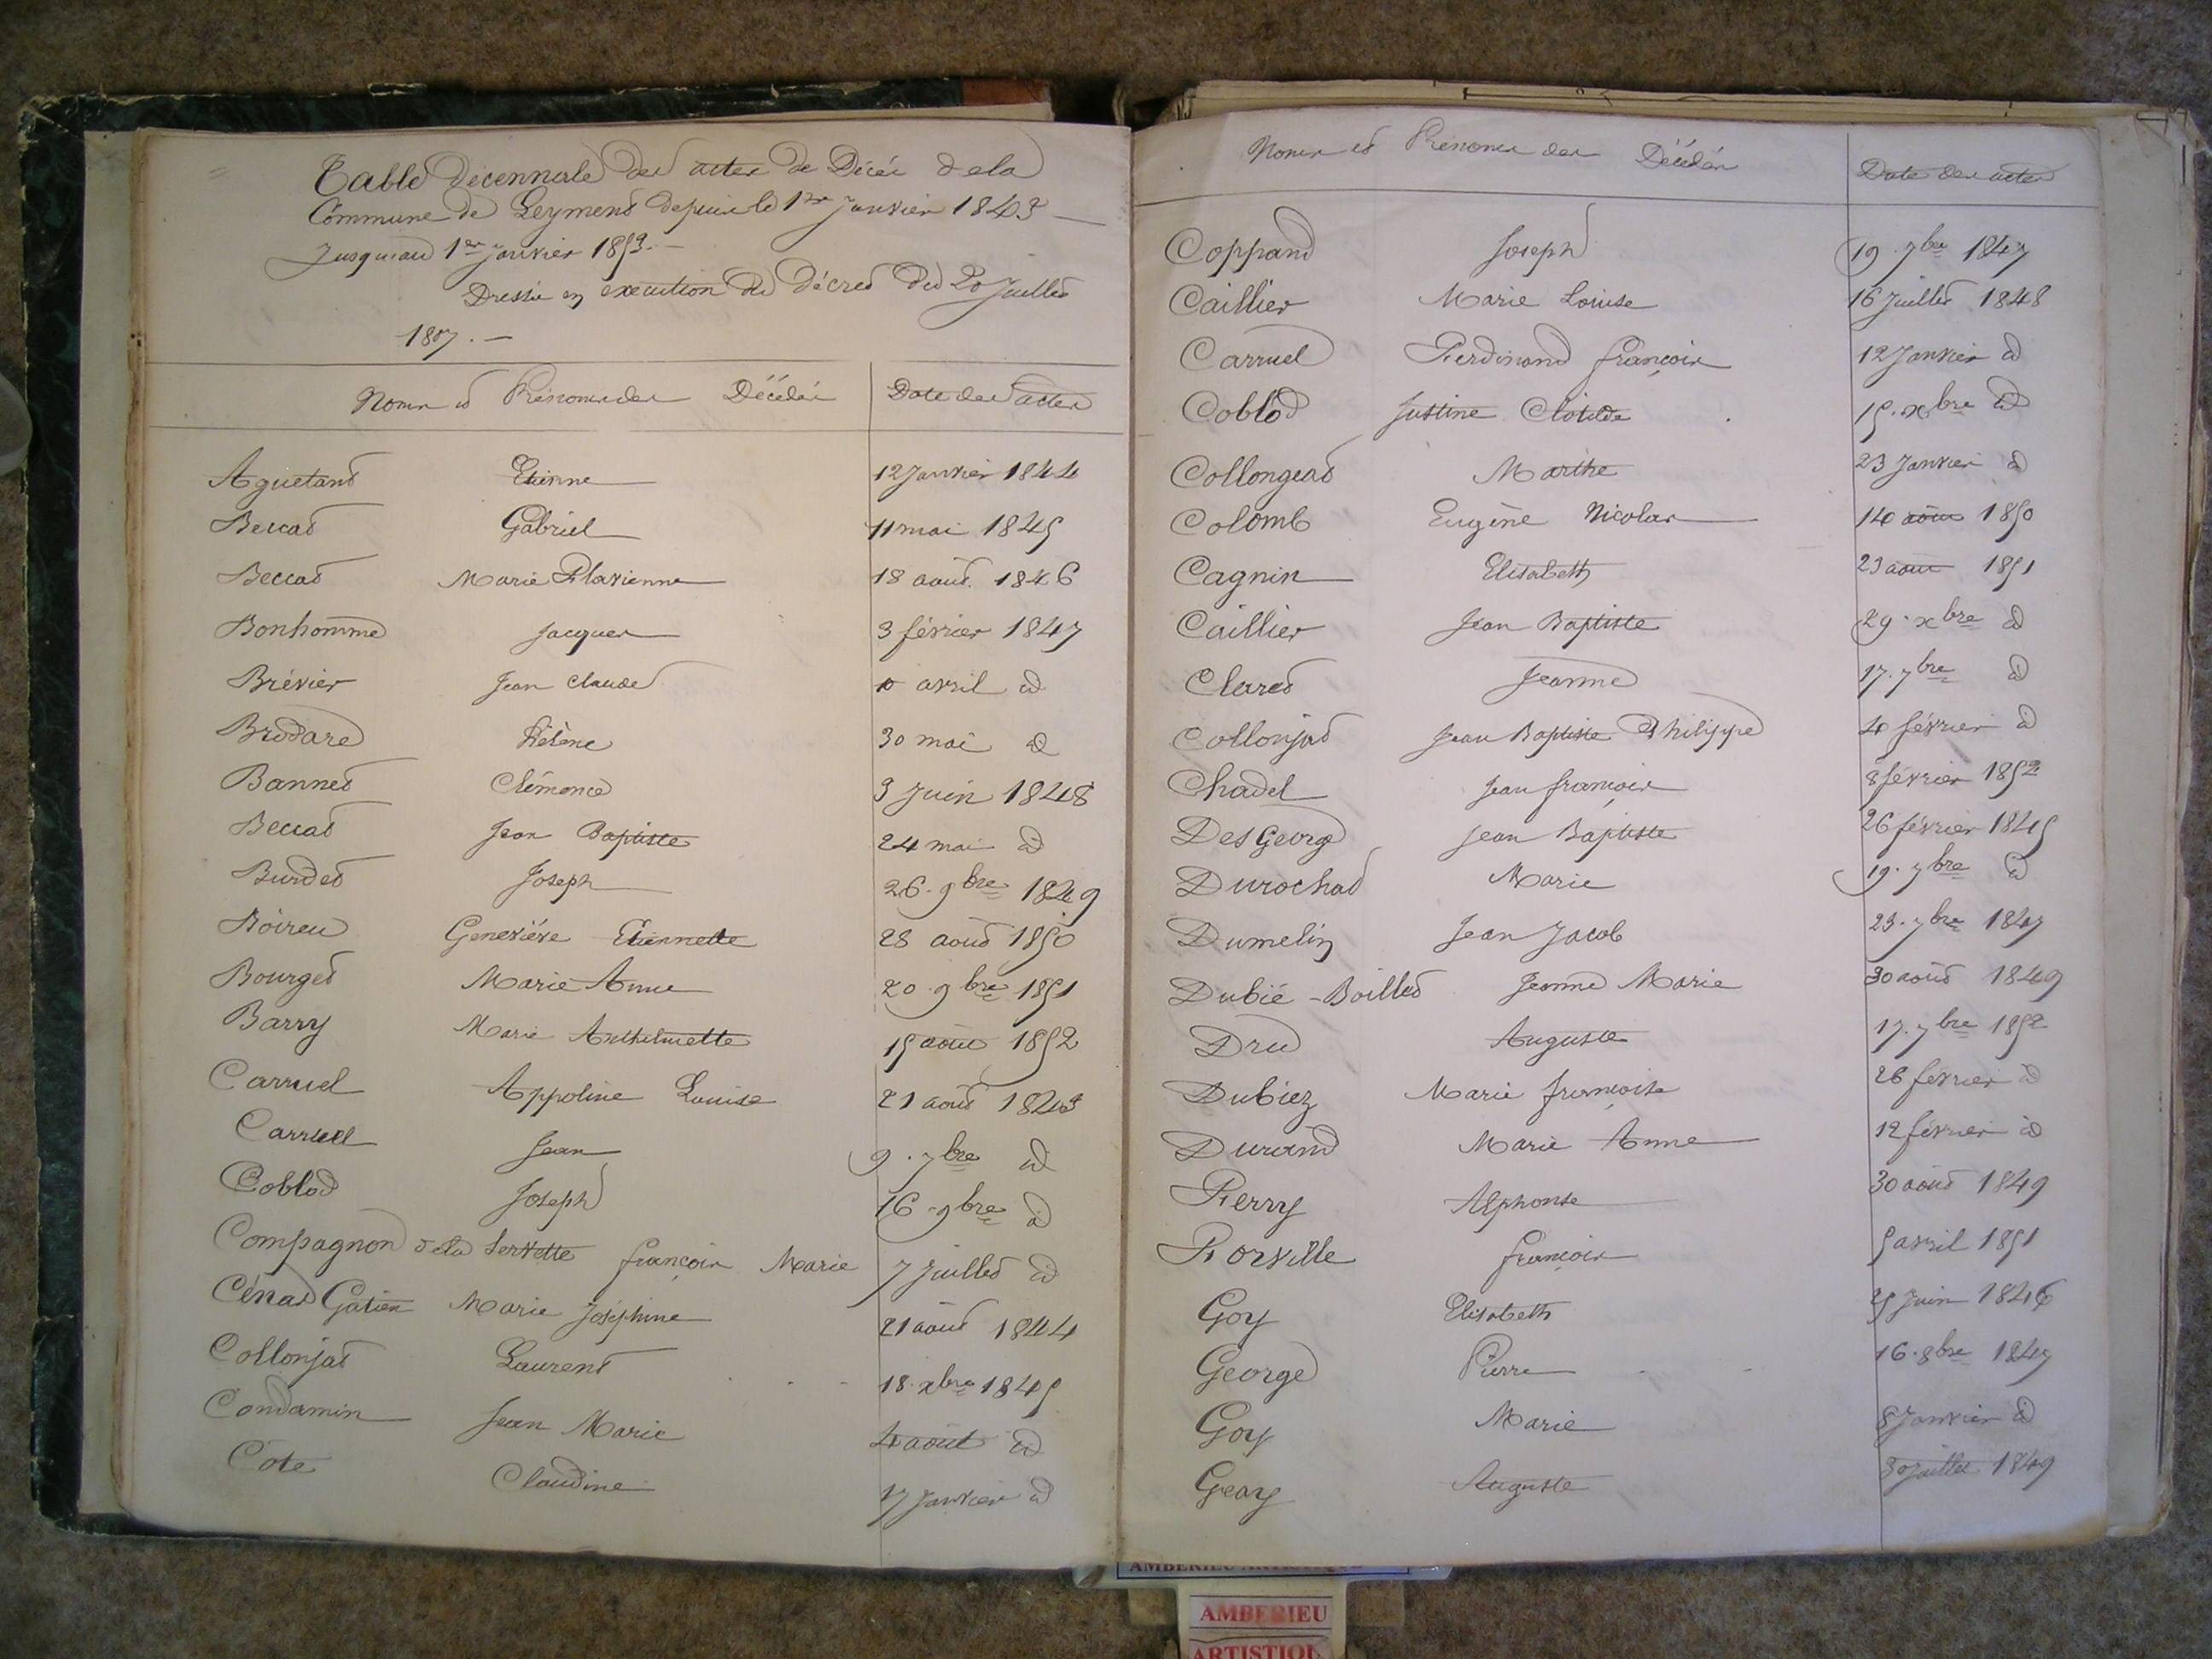 Table Décennale des actes de Décès de la
Commune de Leyment depuis le 1er Janvier 1843
Jusqu'au 1er Janvier 1853.
Dressée en exécution du décret du 20 Juillet
1807.
Noms et Prénoms des Décédés Date des actes
Aguetant Etienne 12 Janvier 1844
Beccat Gabriel 11 mai 1845
Beccat Marie Flavienne 18 août 1846
Bonhomme Jacques 3 février 1847
Brévier Jean Claude 10 avril id
Brodare Hélène 30 mai id
Bannet Clémence 3 Juin 1848
Beccat Jean Baptiste 24 mai id
Burdet Joseph 26 9bre 1849
Boireu Geneviève Etiennette 28 août 1850
Bourget Marie Anne 20 9bre 1851
Barry Marie Anthelmette 15 août 1852
Carruel Appoline Louise 21 août 1843
Carruel Jean 9 7bre id
Coblod Joseph 16 9bre id
Compagnon de la Servette françois Marie 7 Juillet id
Cénas Gatien Marie Joséphine 21 août 1844
Collonjat Laurent 18 xbre 1845
Condamin Jean Marie 4 août id
Côte Claudine 17 Janvier id
Noms et Prénoms des Décédés Date des actes
Coppand Joseph 19 7bre 1847
Caillier Marie Louise 16 Juillet 1848
Carruel Ferdinand françois 12 Janvier id
Coblod Justine Clotilde 15 xbre id
Collongeat Marthe 23 Janvier id
Colomb Eugène Nicolas 14 août 1850
Cagnin Elisabeth 23 août 1851
Caillier Jean Baptiste 29 xbre id
Claret Jeanne 17 7bre id
Collonjat Jean Baptiste Philippe 4 février id
Chadel Jean françois 8 février 1852
Desgeorge Jean Baptiste 26 février 1845
Durochat Marie 19 7bre id
Dumelin Jean Jacob 23 7bre 1847
Dubié-Boillet Jeanne Marie 30 août 1849
Dru Auguste 17 7bre 1852
Dubiez Marie françoise 26 février id
Durand Marie Anne 12 février id
Ferry Alphonse 30 août 1849
Forville françois 5 avril 1851
Goy Elisabeth 25 Juin 1846
George Pierre 16 8bre 1847
Goy Marie 8 Janvier id
Geay Auguste 30 Juillet 1849
AMBERIEU
ARTISTIQU